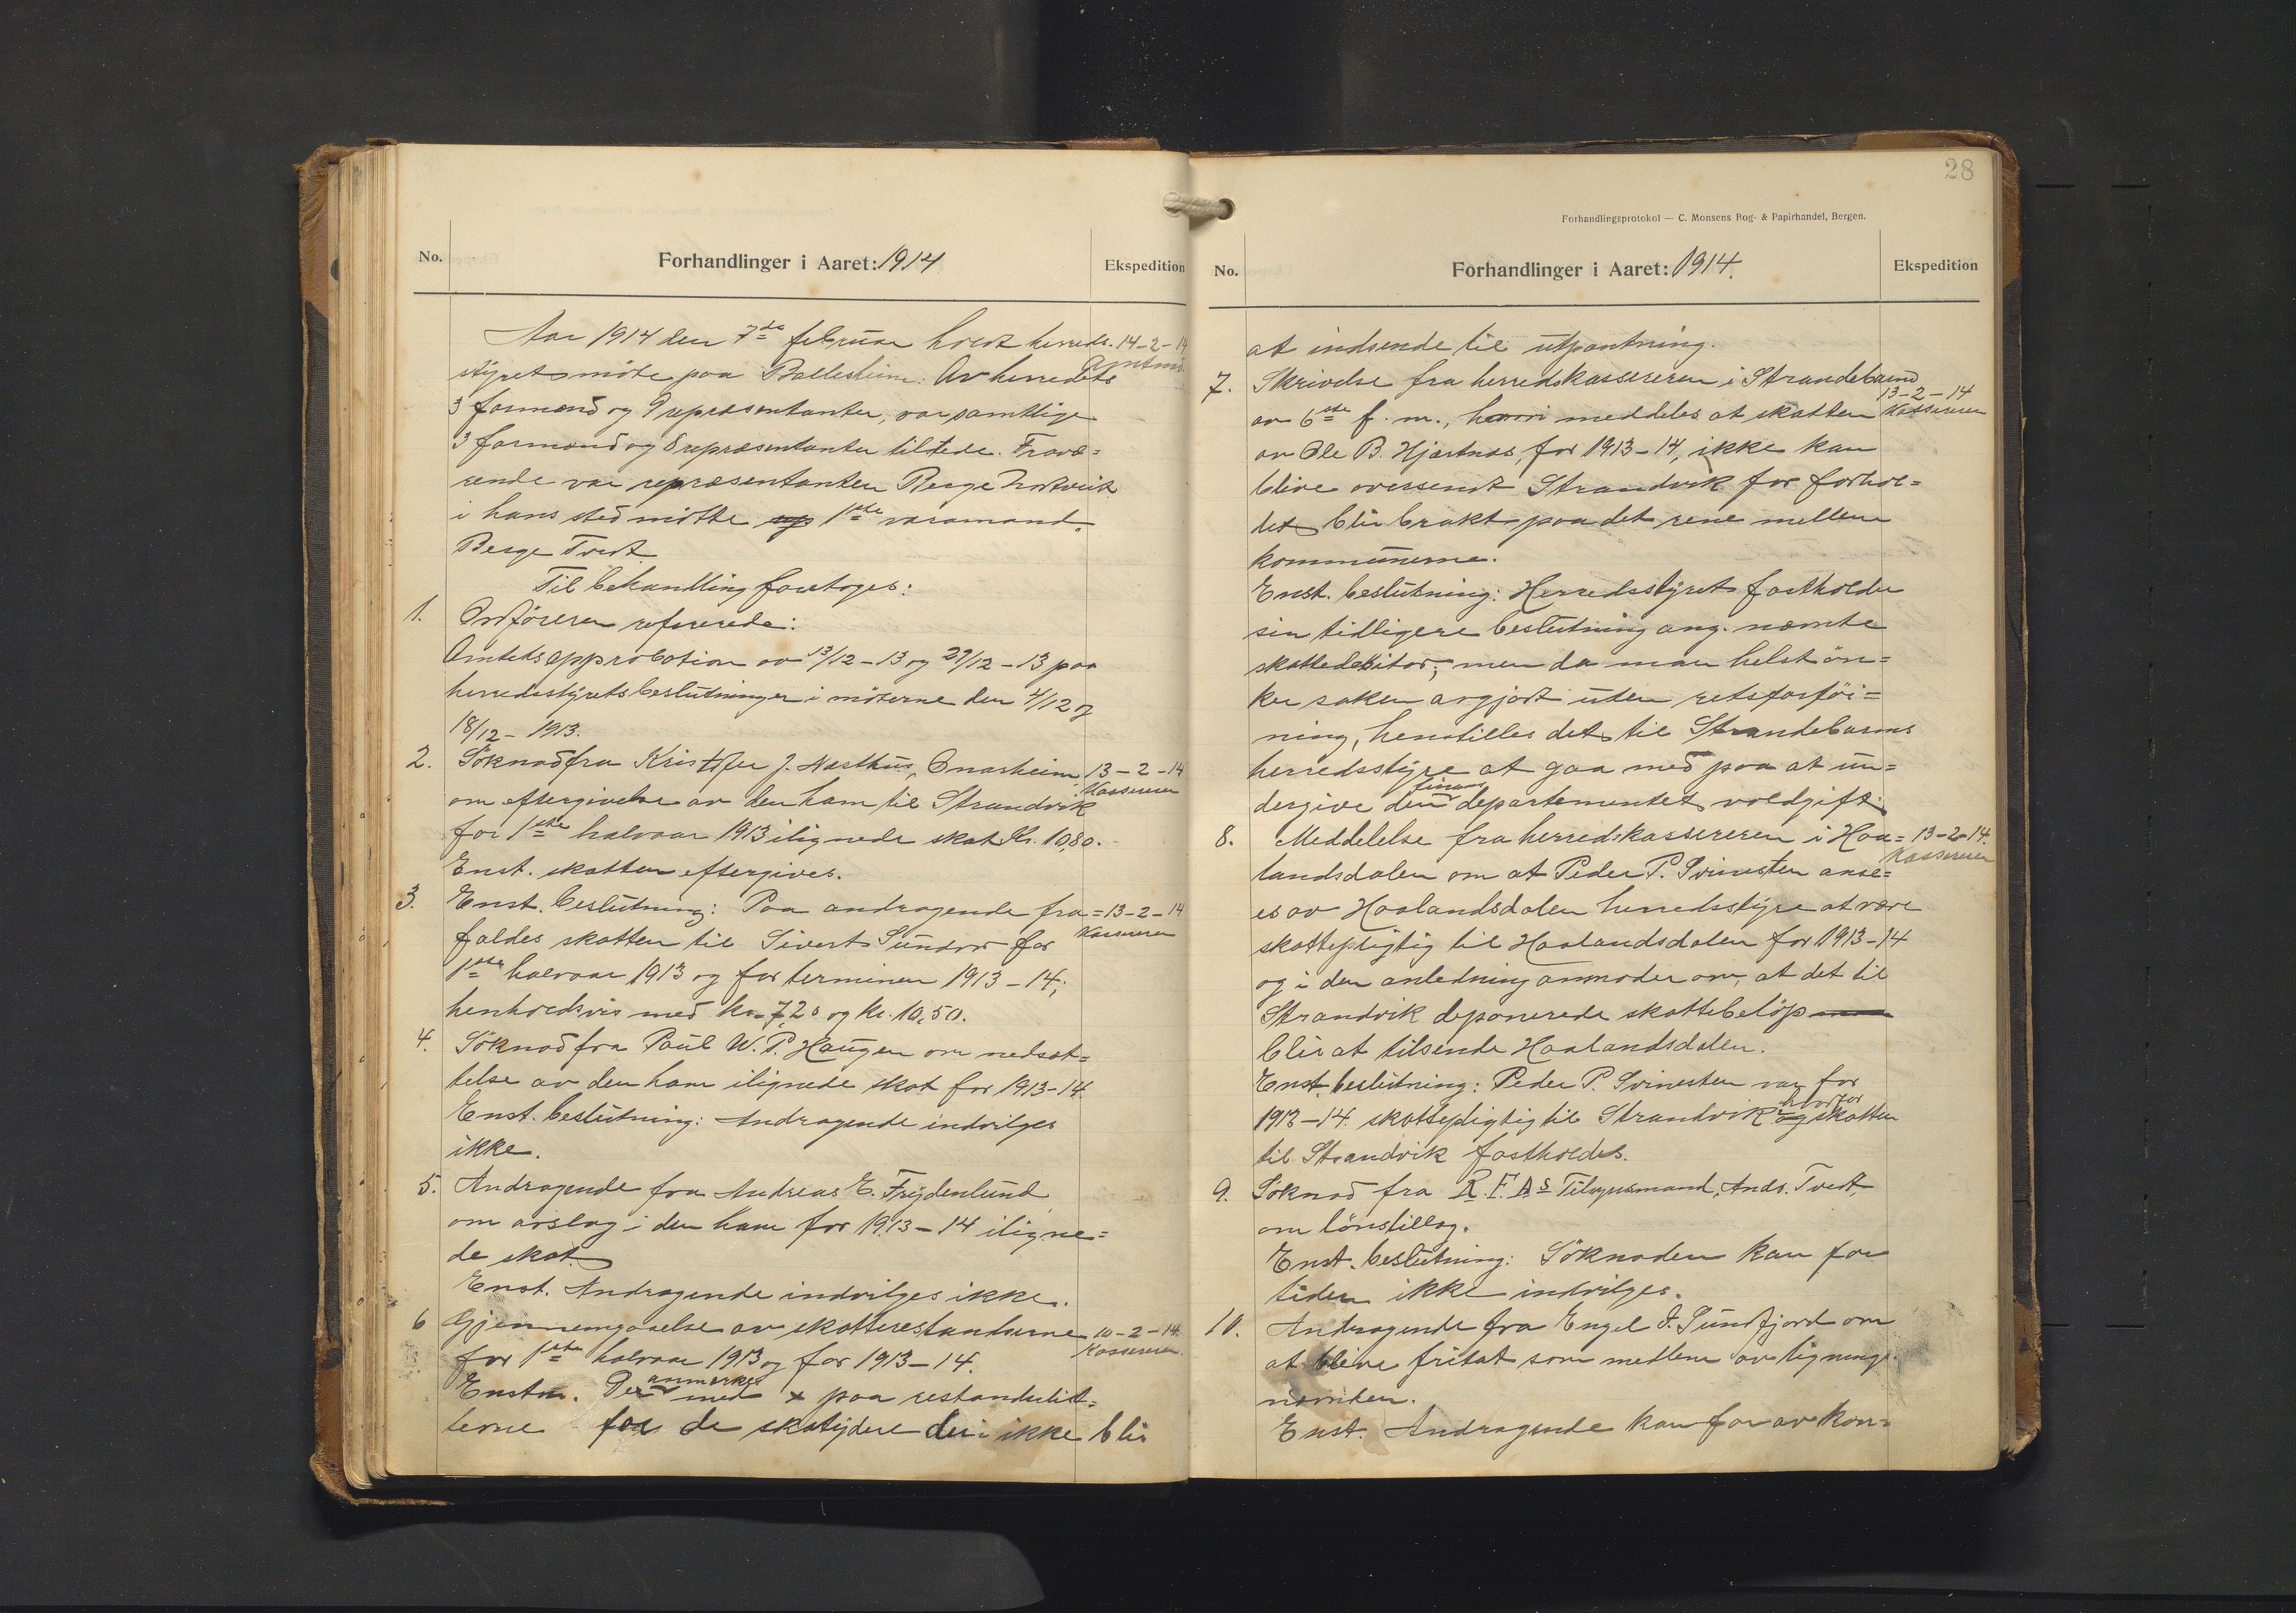 No.
Forhandlinger i Aaret: 1914
Ekspedition
Aar 1914 den 7de februar holdt herreds- 14-2-14
styret møte paa Ballesheim. Av herredets Amtmd.
3 formænd og 9 repræsentanter, var samtlige
3 formænd og 8 repræsentanter tilstede. Fravæ=
rende var repræsentanten Berge
i hans sted møtte 1ste varamand,
Berge Tveit.
Til behandling foretoges:
1. Ordføreren refererede:
Amtets approbation av 13/12-13 og 29/12-13 paa
herredsstyrets beslutninger i møterne den 4/12 og
18/12 - 1913.
2. Söknad fra Kristofer J. Narthus, Onarheim 13-2-14
om eftergivelse av den ham til Strandvik Kassereren
for 1ste halvaar 1913 ilignede skat Kr. 10,80.
Enst. skatten eftergives.
3. Enst. beslutning: Paa andragende fra= 13-2-14
faldes skatten til Sivert Sundvor for Kassereren
1ste halvaar 1913 og for terminen 1913-14;
henholdsvis med kr. 7,20 og kr. 10,50.
4. Söknad fra Paul W. P. Haugen om nedsæt=
telse av den ham ilignede skat for 1913-14.
Enst. beslutning: Andragende indvilges
ikke.
5. Andragende fra Andreas E. Frydenlund
om avslag i den ham for 1913-14 iligne=
de skat.
Enst. Andragende indvilges ikke.
6 Gjennemgaaelse av skatterestanserne 10-2-14.
for 1ste halvaar 1913 og for 1913-14. Kassereren.
anmerkes
Enstm. Der med x paa restanselist=
terne for de skatydere der ikke blir
28
Forhandlingsprotokol — C. Monsens Bog- & Papirhandel, Bergen.
No.
Forhandlinger i Aaret: 1914.
Ekspedition
at indsende til utpantning.
7. Skrivelse fra herredskassereren i Strandebarm
13-2-14
av 6ste f. m., hvori meddeles at skatten Kassereren
av Ole B. Hjartnes, for 1913-14, ikke kan
blive oversendt Strandvik før forhol=
det blir brakt paa det rene mellem
kommunerne.
Enst. beslutning: Herredsstyret fastholder
sin tidligere beslutning ang. nævnte
skattedebitor; men da man helst øn=
ker saken avgjort uten retsforføi=
ning, henstilles det til Strandebarms
herredsstyre at gaa med paa at un=
finans
dergive den departementets voldgift.
8. Meddelelse fra herredskassereren i Haa= 13-2-14.
landsdalen om at Peder P. Svinesten anse= Kassereren
es av Haalandsdalen herredsstyre at være
skattepligtig til Haalandsdalen for 1913-14
og i den anledning anmoder om, at det til
Strandvik deponerede skattebeløp
blir at tilsende Haalandsdalen.
Enst. beslutning: Peder P. Svinesten var for
hvorfor
1913-14. skattepligtig til Strandvik og skatten
til Strandvik fastholdes.
9. Söknad fra R. F. As Tilsynsmand, Ands. Tveit,
om lönstillæg.
Enst. beslutning: Söknaden kan for
tiden ikke indvilges.
10. Andragende fra Engel I. Sundfjord om
at bleve fritat som medlem av lignings=
nævnden.
Enst. Andragende kan for av kon=